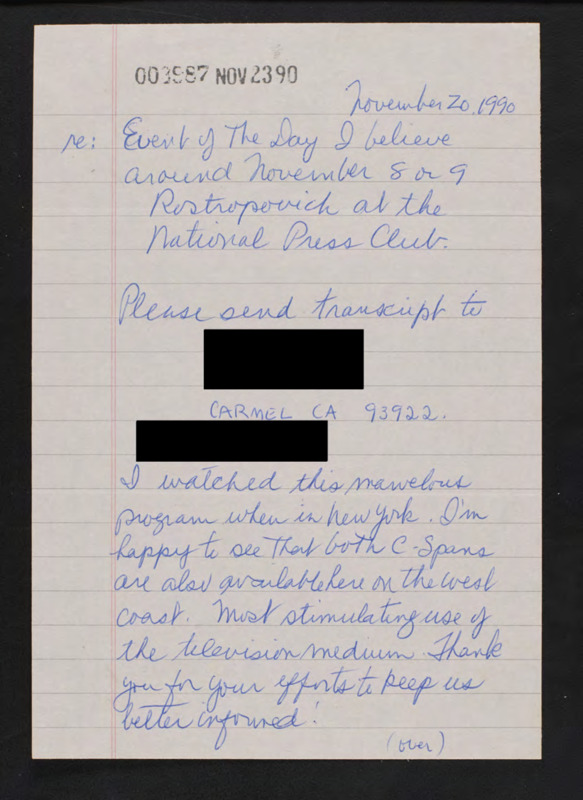 003587 NOV 23 90
November 20, 1990
re: Event of The Day I believe
around November 8 or 9
Rostropovich at the
National Press Club.
Please send transcript to
CARMEL CA 93922.
I watched this marvelous
program when in New York. I'm
happy to see that both C-Spans
are also available here on the west
coast. Most stimulating use of
the television medium. Thank
you for your efforts to keep us
better informed!
(over)